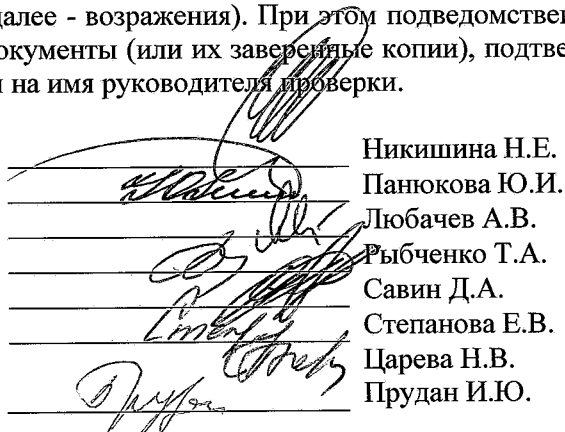 далее - возражения). При этом подведомствен
окументы (или их заверенные копии), подтве
на имя руководителя проверки.
Никишина Н.Е.
Панюкова Ю.И.
Любачев А.В.
Рыбченко Т.А.
Савин Д.А.
Степанова Е.В.
Царева Н.В.
Прудан И.Ю.